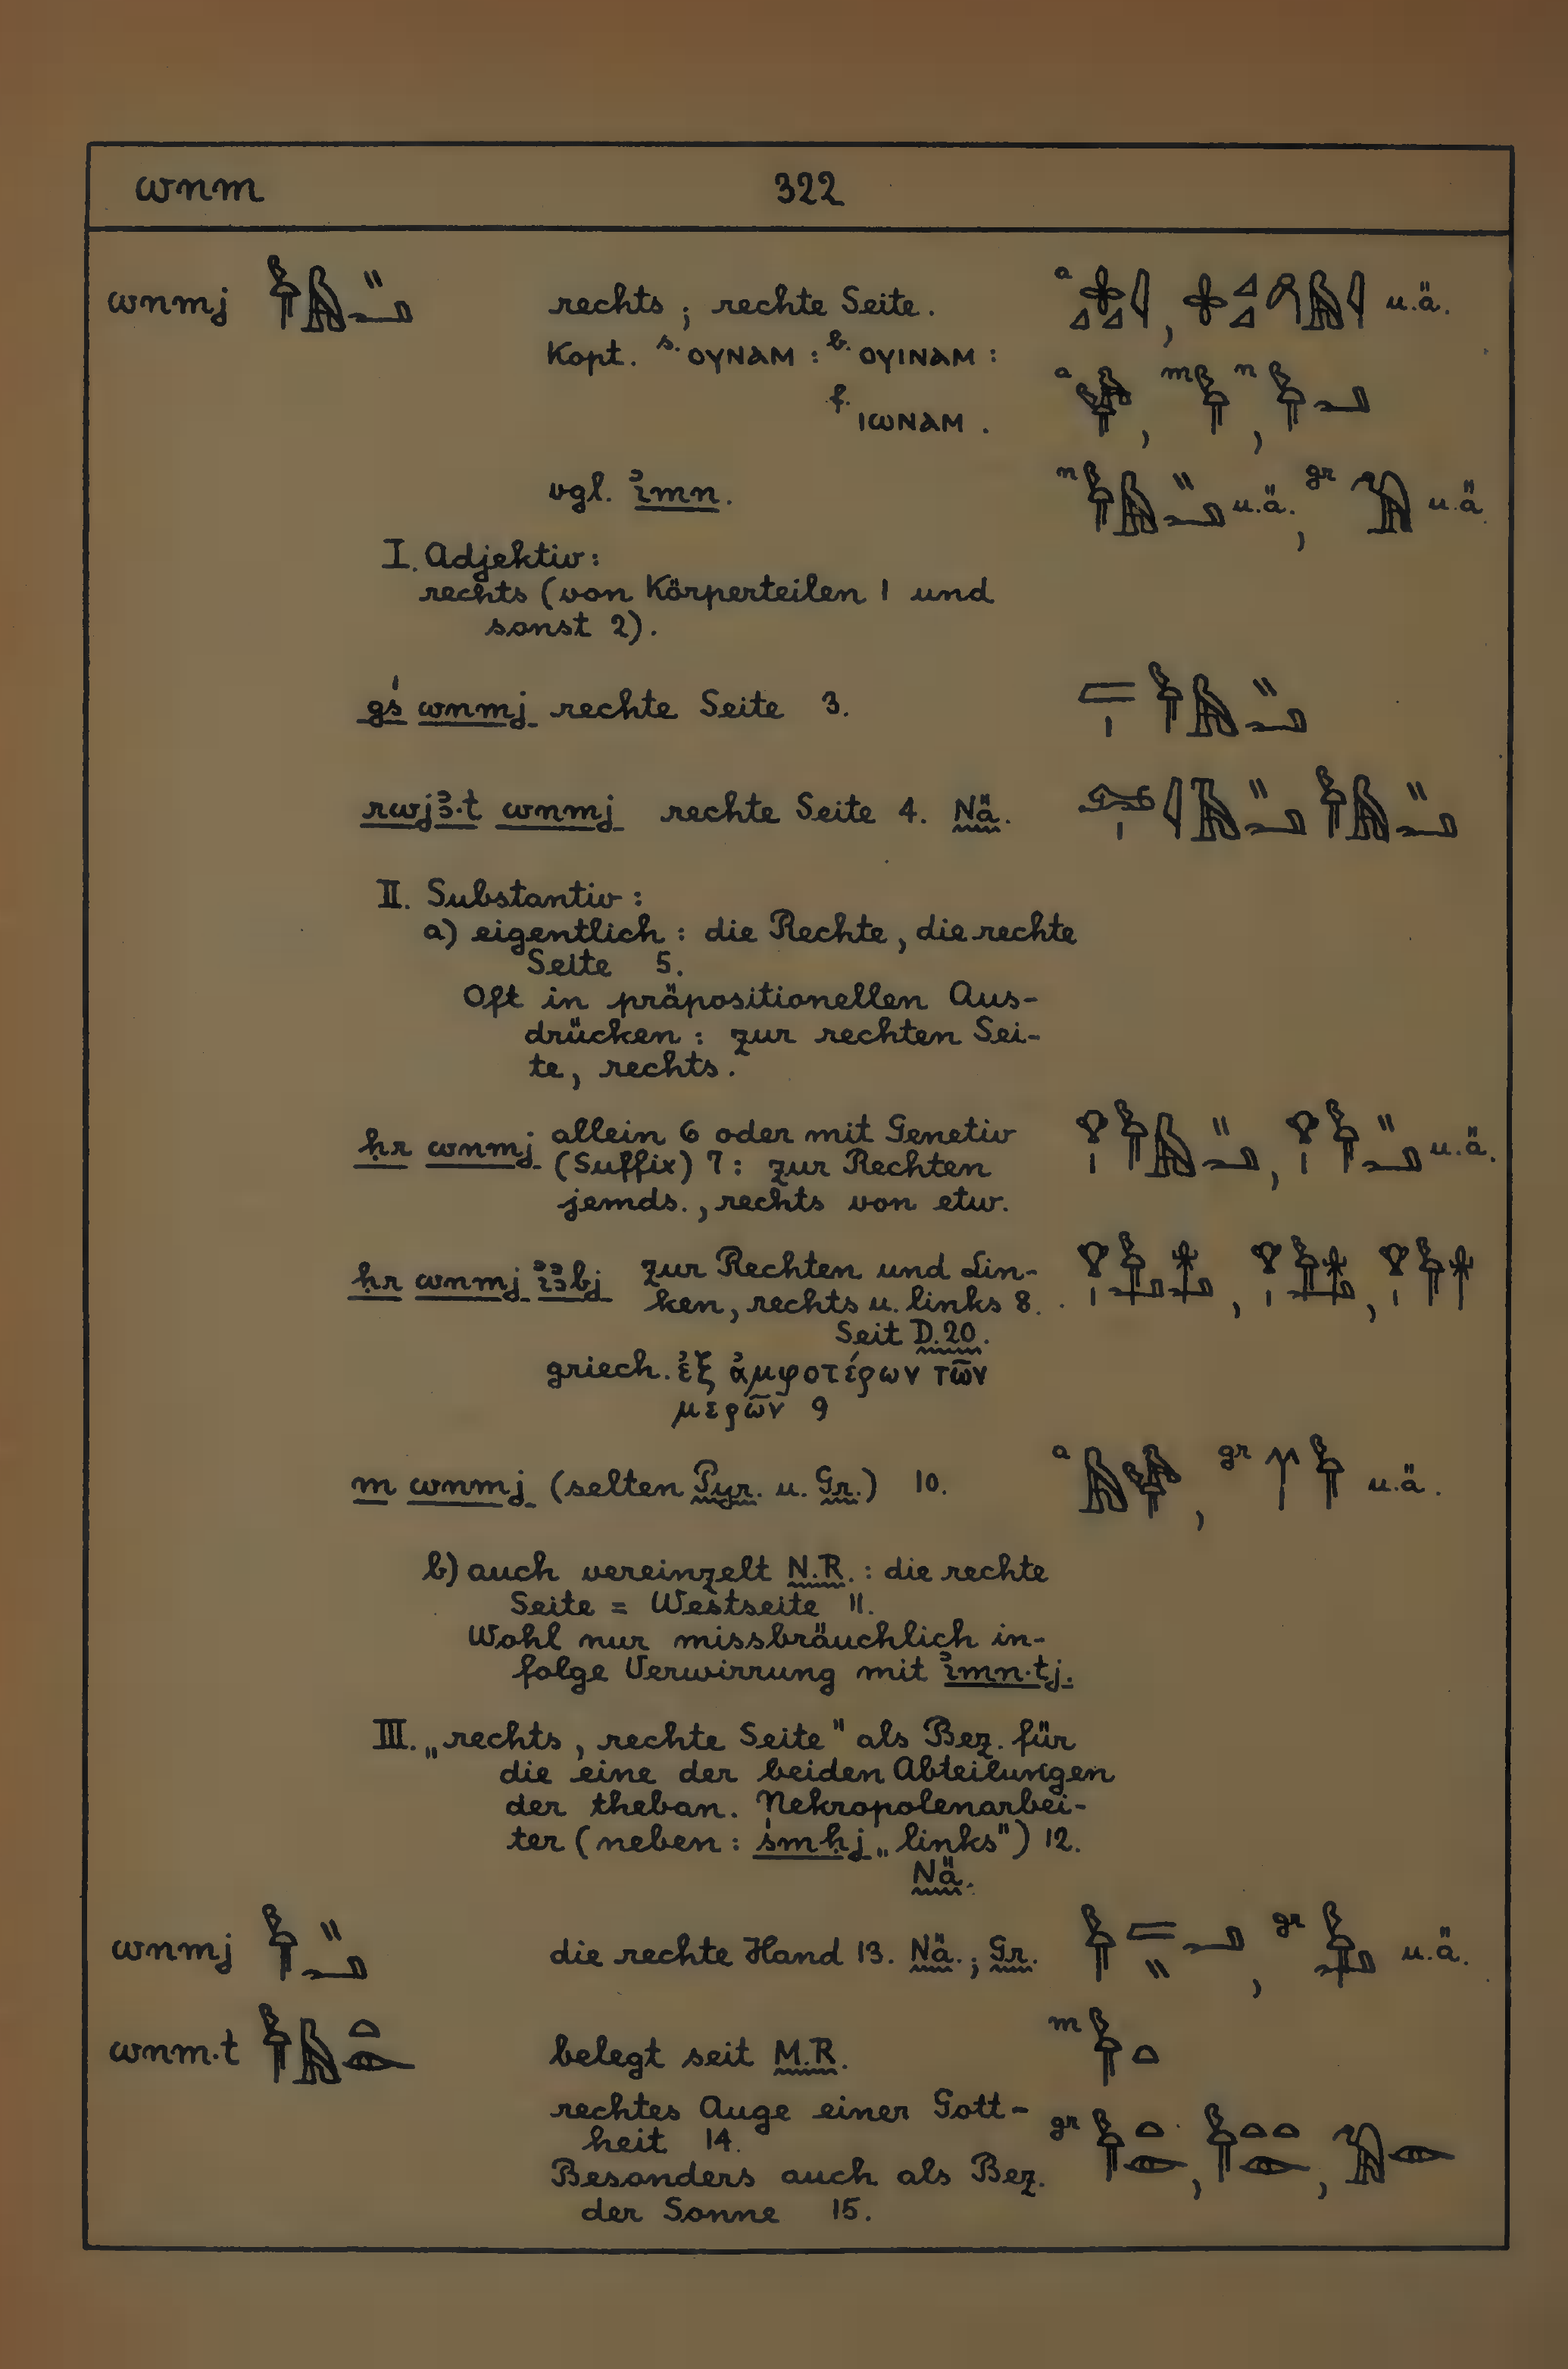 wnm 322
wnmj rechts ; rechte Seite. u.ä.
Kopt. s. ⲟⲩⲛⲁⲙ : b. ⲟⲩⲓⲛⲁⲙ :
f. ⲓⲱⲛⲁⲙ .
vgl. ỉmn. u.ä. gr u.ä.
I. Adjektiv:
rechts (von Körperteilen 1 und
sonst 2).
gś wnmj rechte Seite 3.
rwjꜣ·t wnmj rechte Seite 4. Nä.
II. Substantiv :
a) eigentlich : die Rechte, die rechte
Seite 5.
Oft in präpositionellen Aus-
drücken : zur rechten Sei-
te, rechts.
ḥr wnmj allein 6 oder mit Genetiv
(Suffix) 7 : zur Rechten u.ä.
jemds., rechts von etw.
ḥr wnmj ỉꜣbj zur Rechten und Lin-
ken, rechts u. links 8.
Seit D.20.
griech. ἐξ ἀμφοτέρων τῶν
μερῶν 9
m wnmj (selten Pyr. u. Gr.) 10. a , gr u.ä.
b) auch vereinzelt N.R. : die rechte
Seite = Westseite 11.
Wohl nur missbräuchlich in-
folge Verwirrung mit ỉmn·tj.
III. „rechts, rechte Seite" als Bez. für
die eine der beiden Abteilungen
der theban. Nekropolenarbei-
ter (neben : śmḥj „links") 12.
Nä.
wnmj die rechte Hand 13. Nä. ; Gr. , gr u.ä.
wnm·t belegt seit M.R. m
rechtes Auge einer Gott-
heit 14. gr
Besonders auch als Bez.
der Sonne 15.